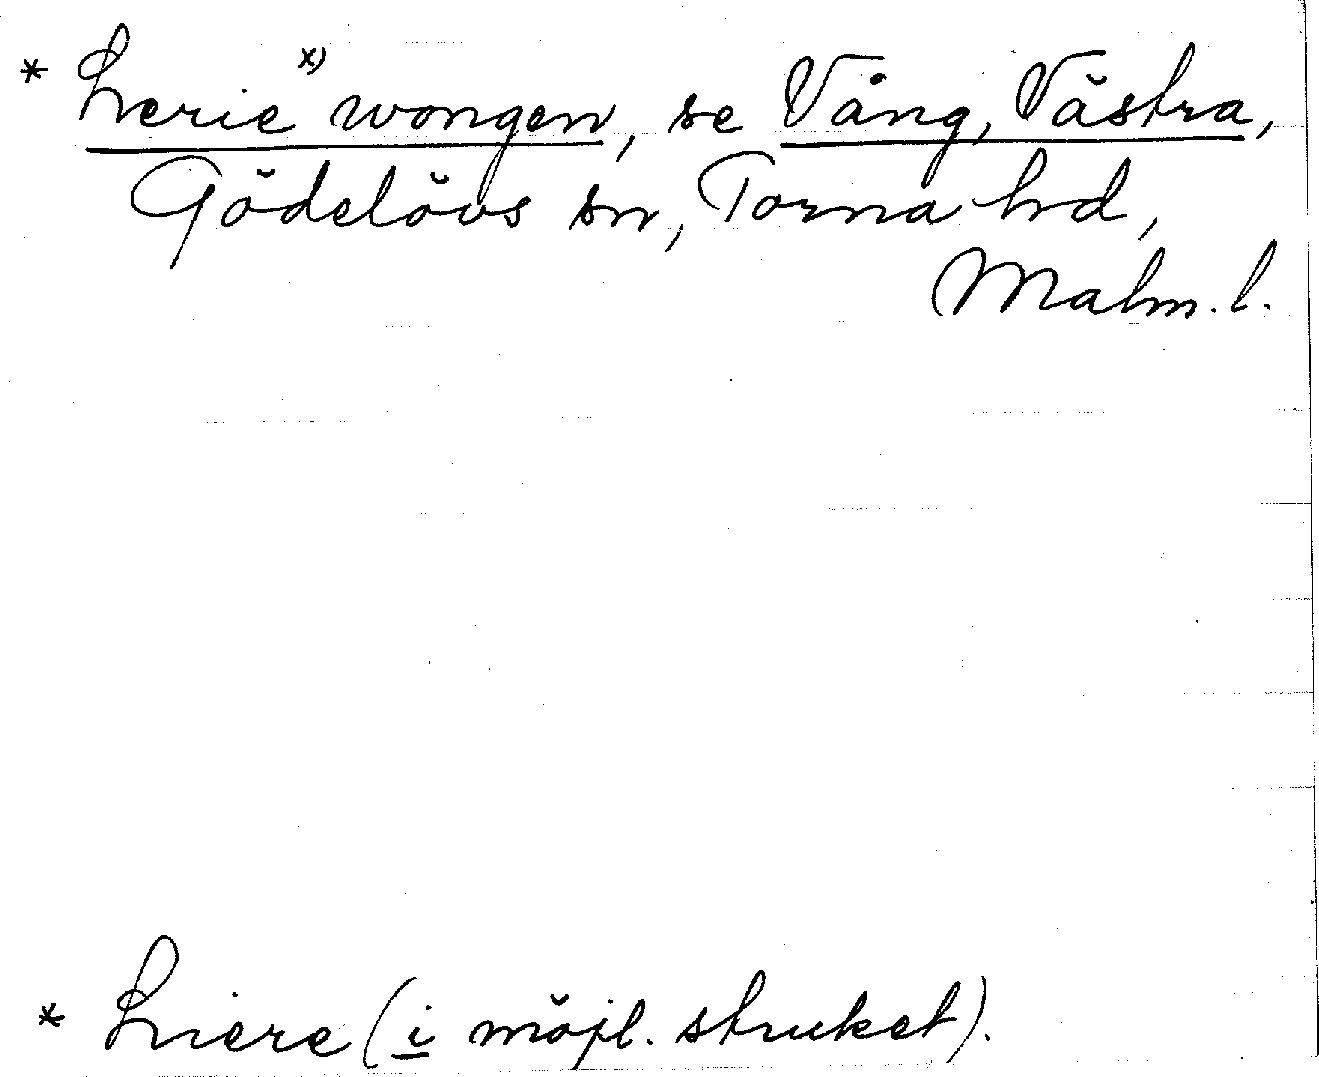 * Lerie x) wongen, se Vång, Västra,
Gödelövs sn, Torna hd,
Malm. l.
* Liere (i möjl. struket).